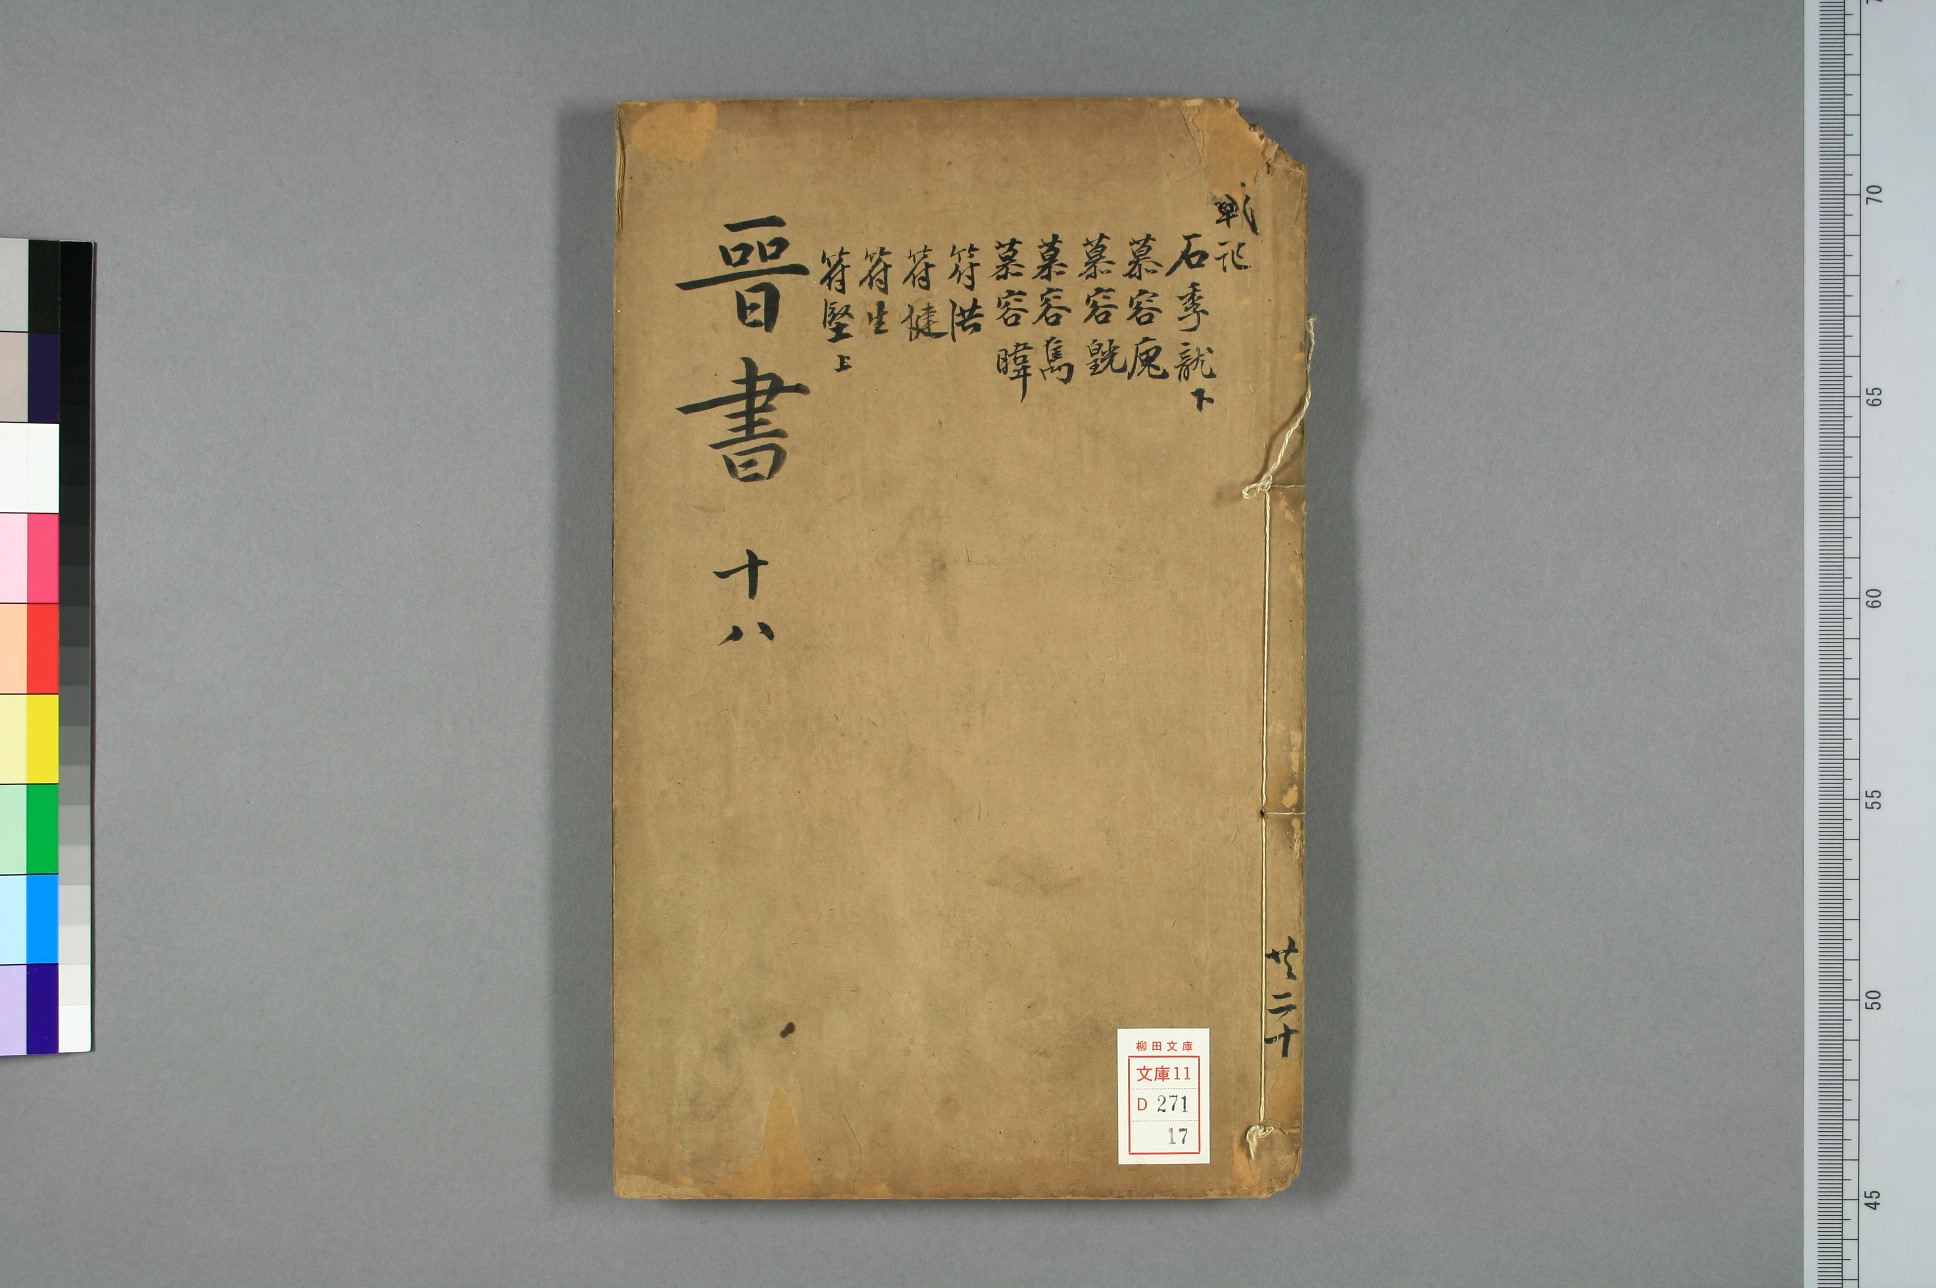 載記
石季龍下
慕容廆
慕容皝
慕容雋
慕容暐
符洪
符健
符生
符堅上
晉書 十八
共二十
柳田文庫
文庫11
D 271
17
70
65
60
55
50
45